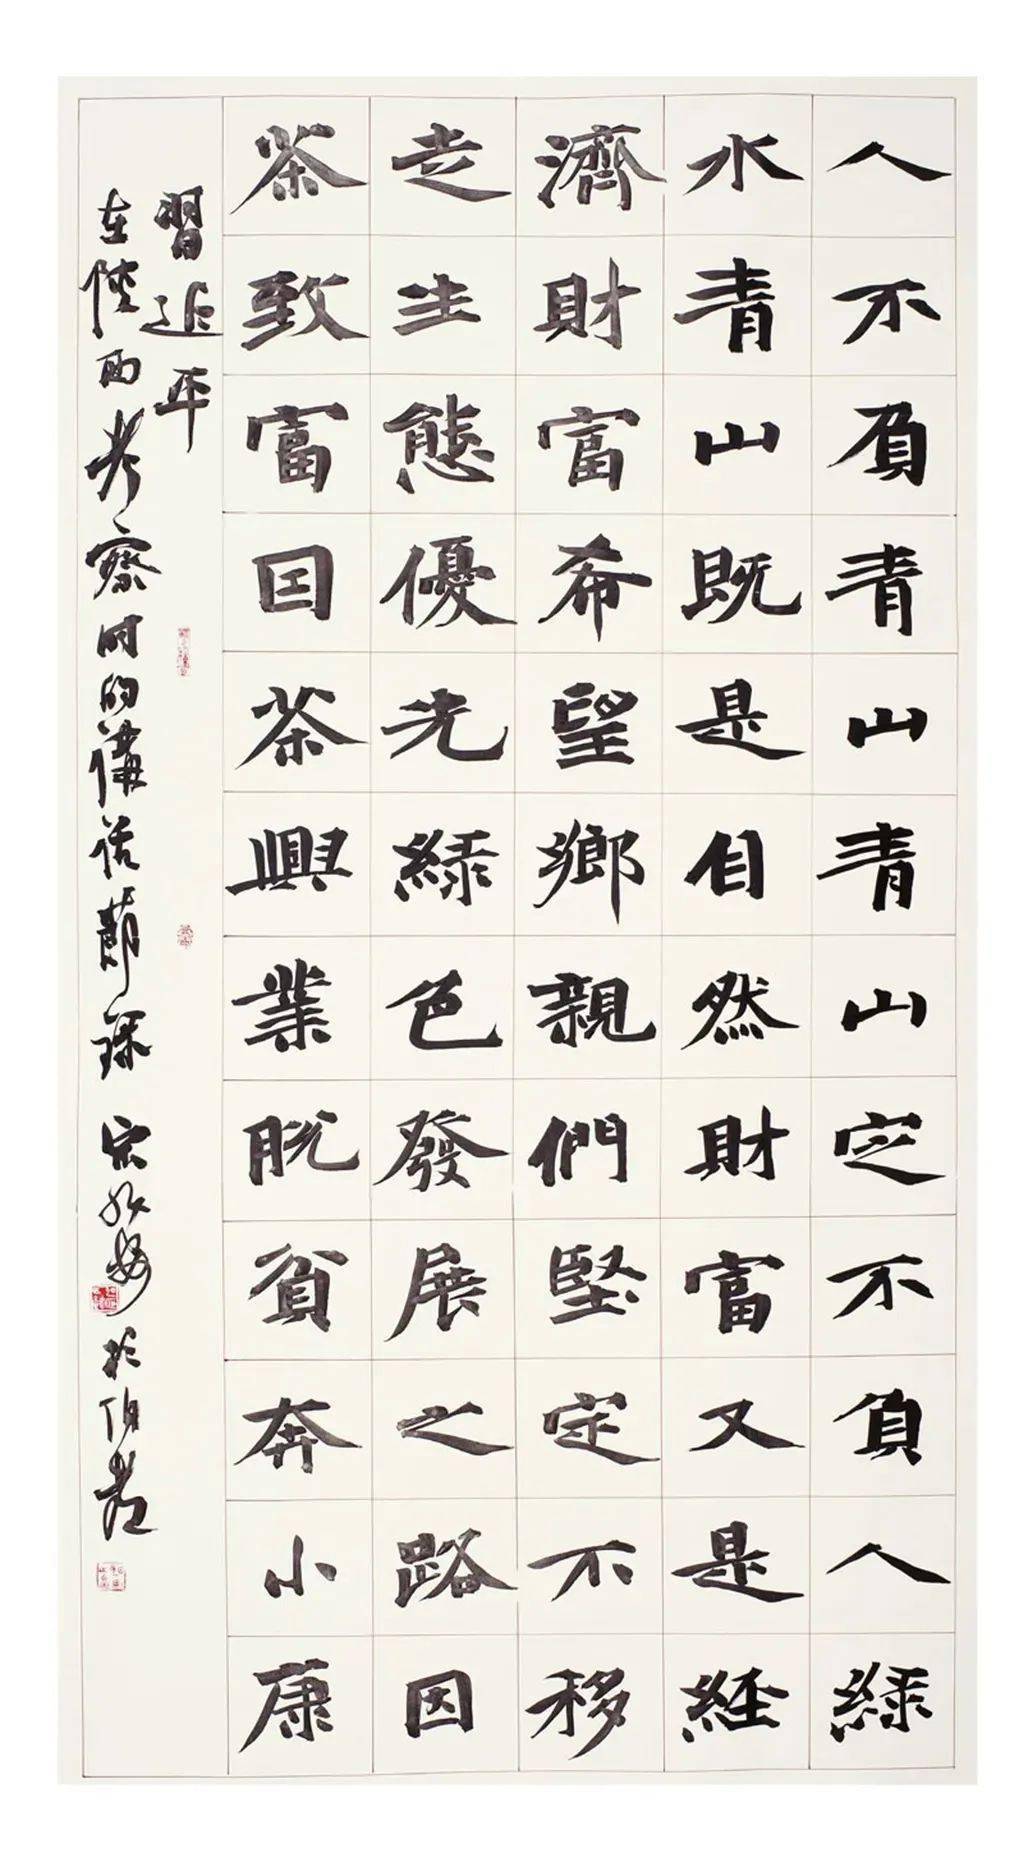 人不負青山青山定不負人綠
水青山既是自然財富又是經
濟財富希望鄉親們堅定不移
走生態優先綠色發展之路因
茶致富因茶興業脫貧奔小康
習近平
在陝西考察時的講話節錄 於